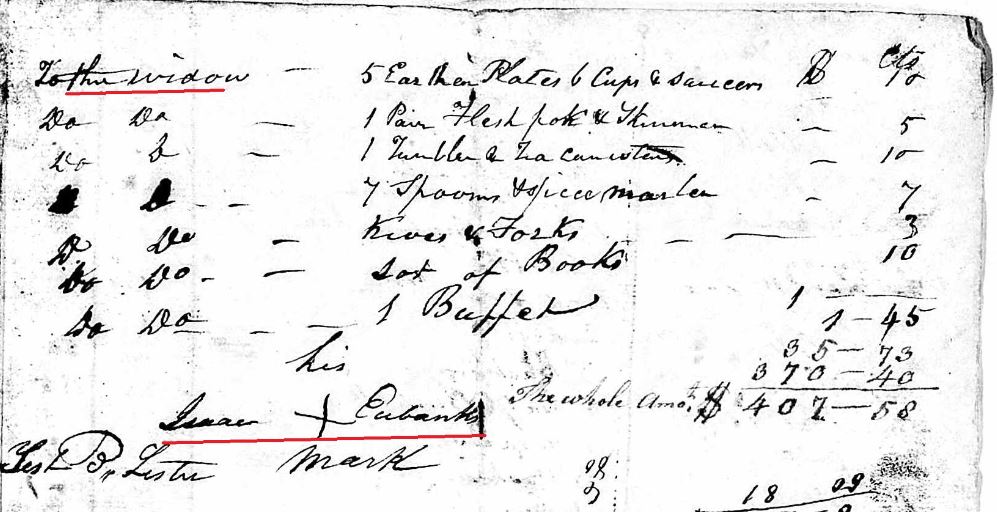 To the widow — 5 Earthen Plates 6 Cups & saucers $ Cts 10
Do Do — 1 Pair Flesh fork & Skimmer — 5
Do D — 1 Tumbler & Tea canister — 10
7 Spoons & spice — 7
D Do — Knives & Forks — — 3
Do Do - — Lot of Books 10
Do Do - — 1 Buffet 1 —
1 - 45
his 35 - 73
370 - 40
Isaac + Eubanks The whole Amot. $ 407 - 58
Test B. Lester mark
18 09